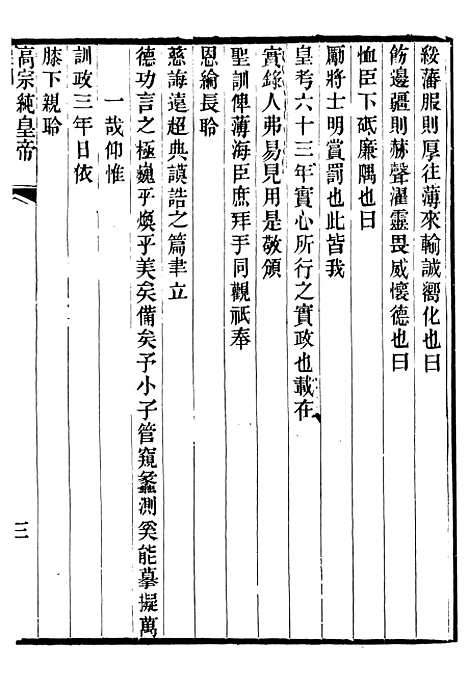 綏藩服則厚往薄來輸誠嚮化也曰
飭邊疆則赫聲濯靈畏威懷德也曰
恤臣下砥廉隅也曰
勵將士明賞罰也此皆我
皇考六十三年實心所行之實政也載在
實錄人弗易見用是敬頒
聖訓俾薄海臣庶拜手同觀祇奉
恩綸長聆
慈誨遠超典謨誥之篇聿立
德功言之極巍乎煥乎美矣備矣予小子管窺蠡測奚能摹擬萬
一哉仰惟
訓政三年日依
膝下親聆
高宗純皇帝
三